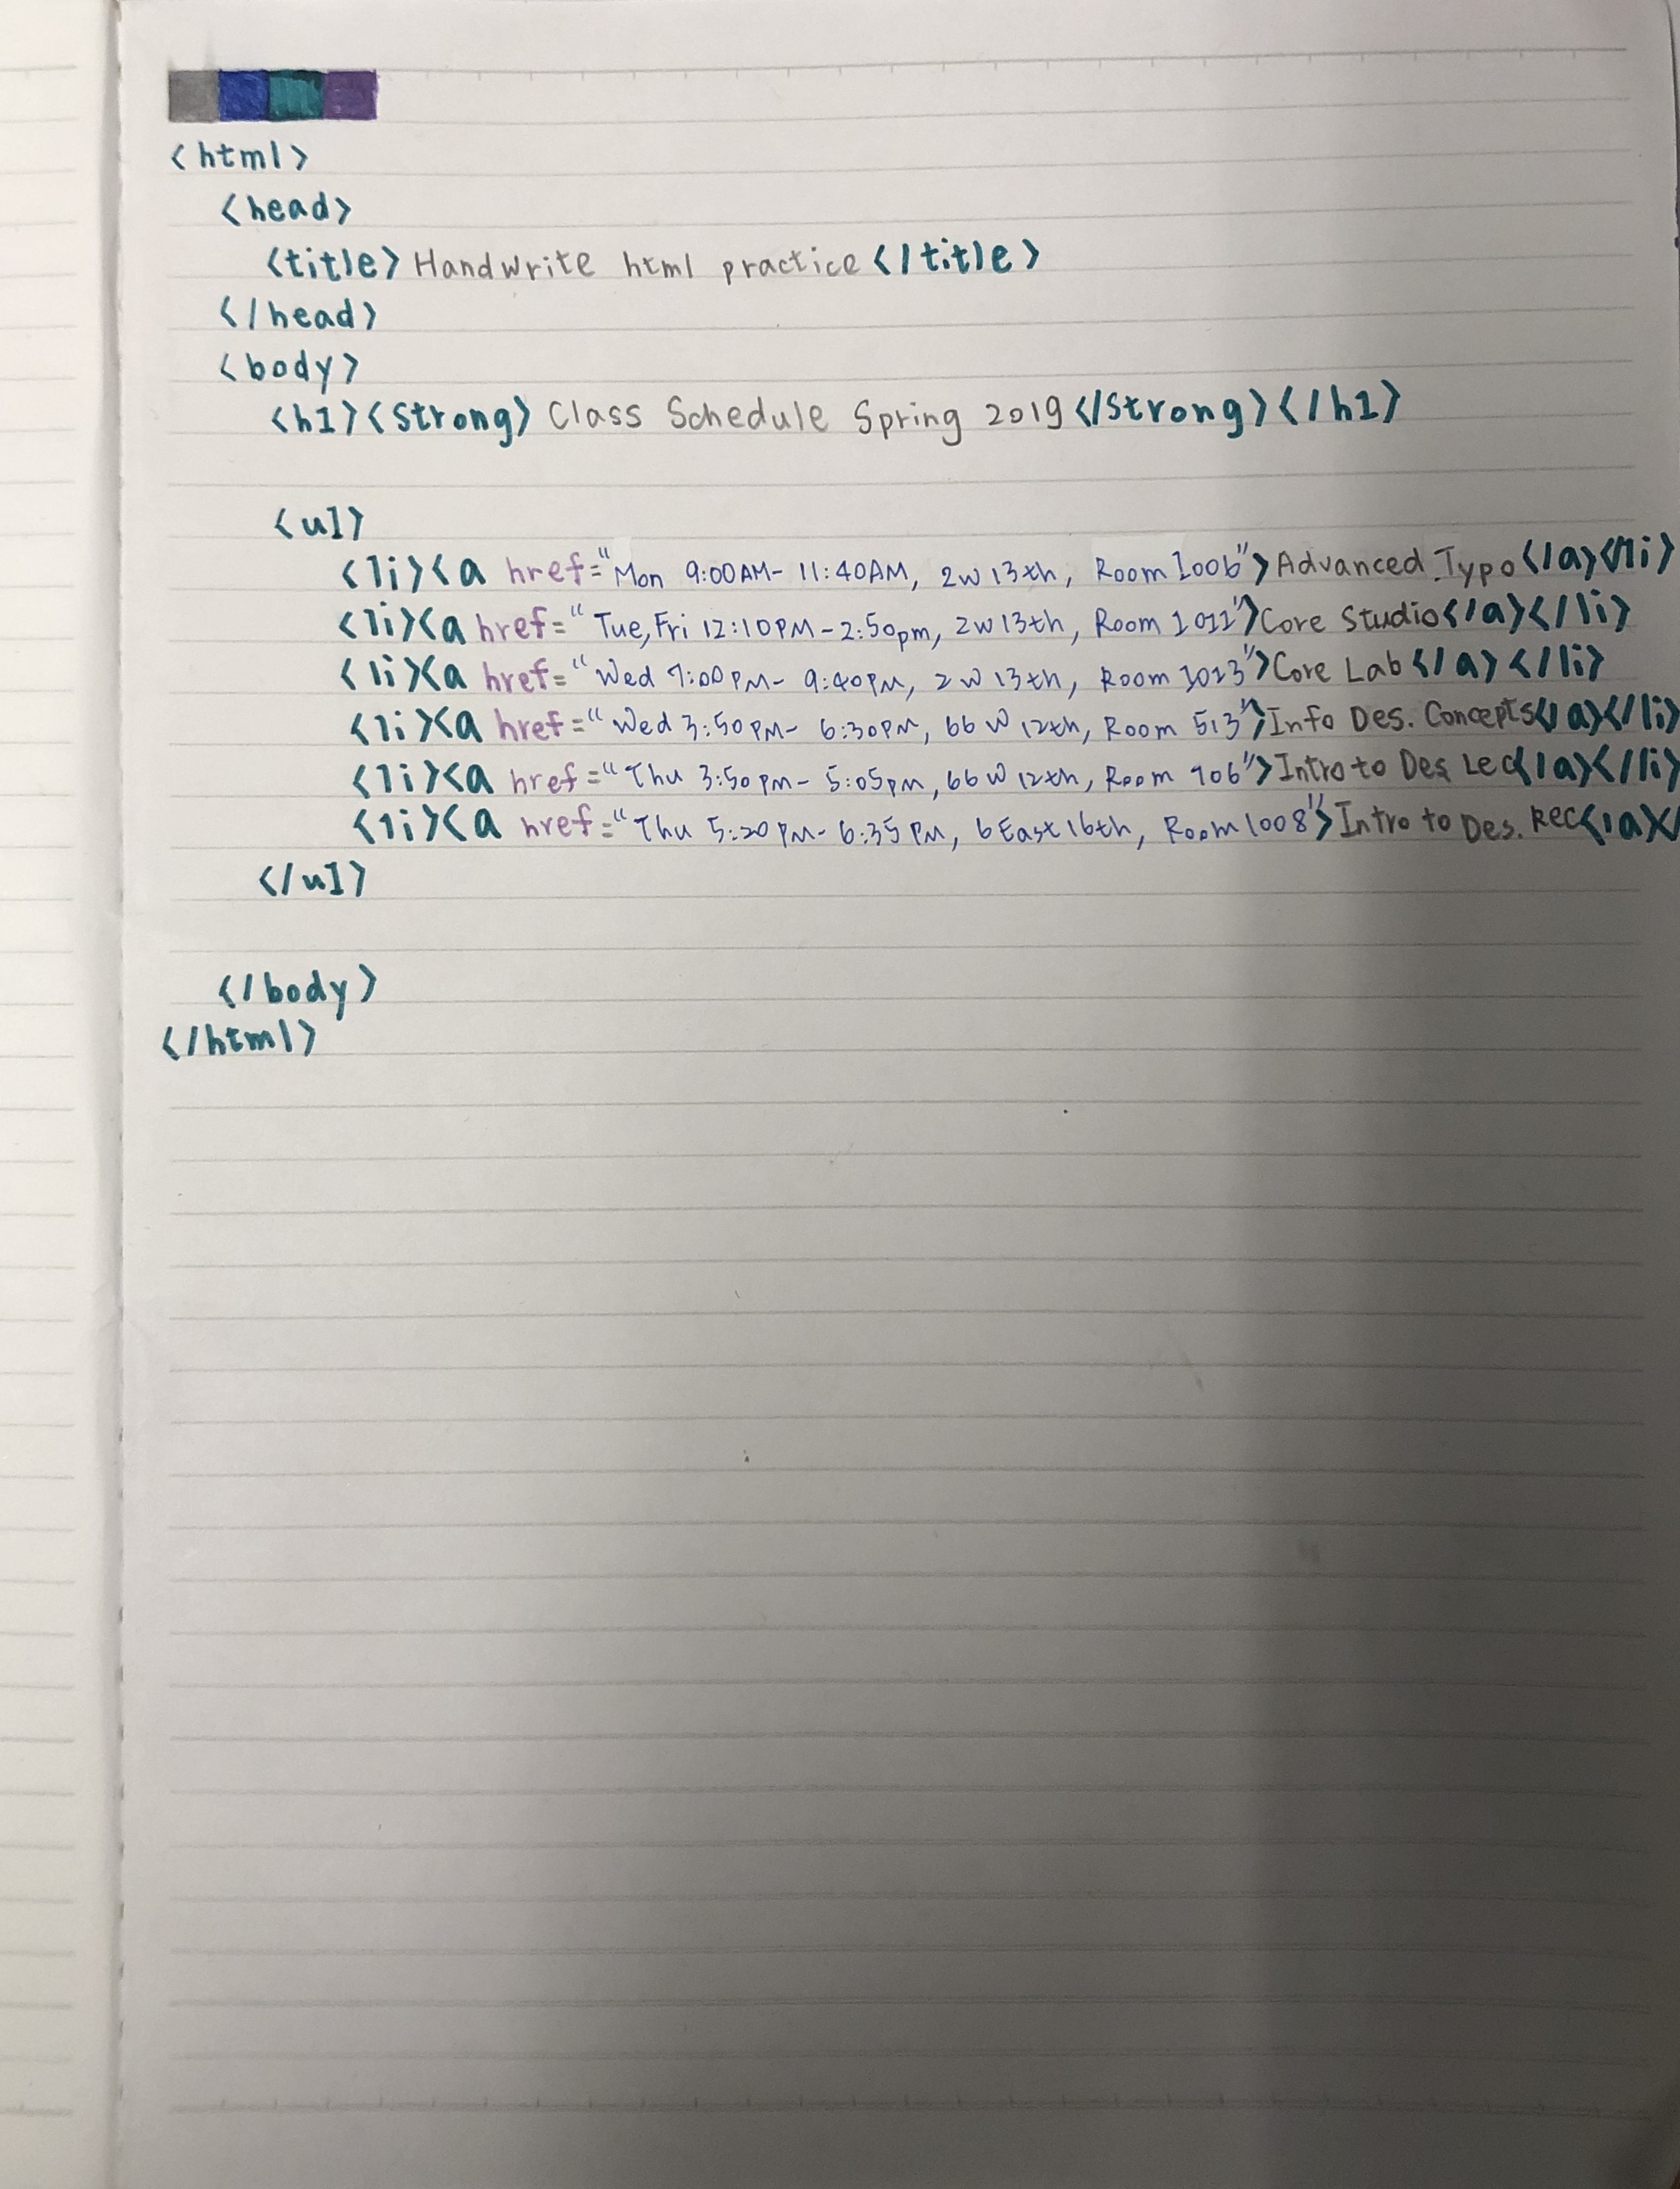 <html>
<head>
<title>Handwrite html practice</title>
</head>
<body>
<h1><strong>Class Schedule Spring 2019</strong></h1>
<ul>
<li><a href="Mon 9:00AM- 11:40AM, 2W 13th, Room 1006">Advanced Typo</a></li>
<li><a href="Tue, Fri 12:10PM-2:50pm, 2W 13th, Room 1011">Core Studio</a></li>
<li><a href="Wed 7:00PM- 9:40PM, 2W 13th, Room 1013">Core Lab</a></li>
<li><a href="Wed 3:50PM- 6:30PM, 66 W 12th, Room 513">Info Des. Concepts</a></li>
<li><a href="Thu 3:50PM- 5:05PM, 66 W 12th, Room 906">Intro to Des. Lec</a></li>
<li><a href="Thu 5:20PM- 6:35PM, 6 East 16th, Room 1008">Intro to Des. Rec</a></
</ul>
</body>
</html>